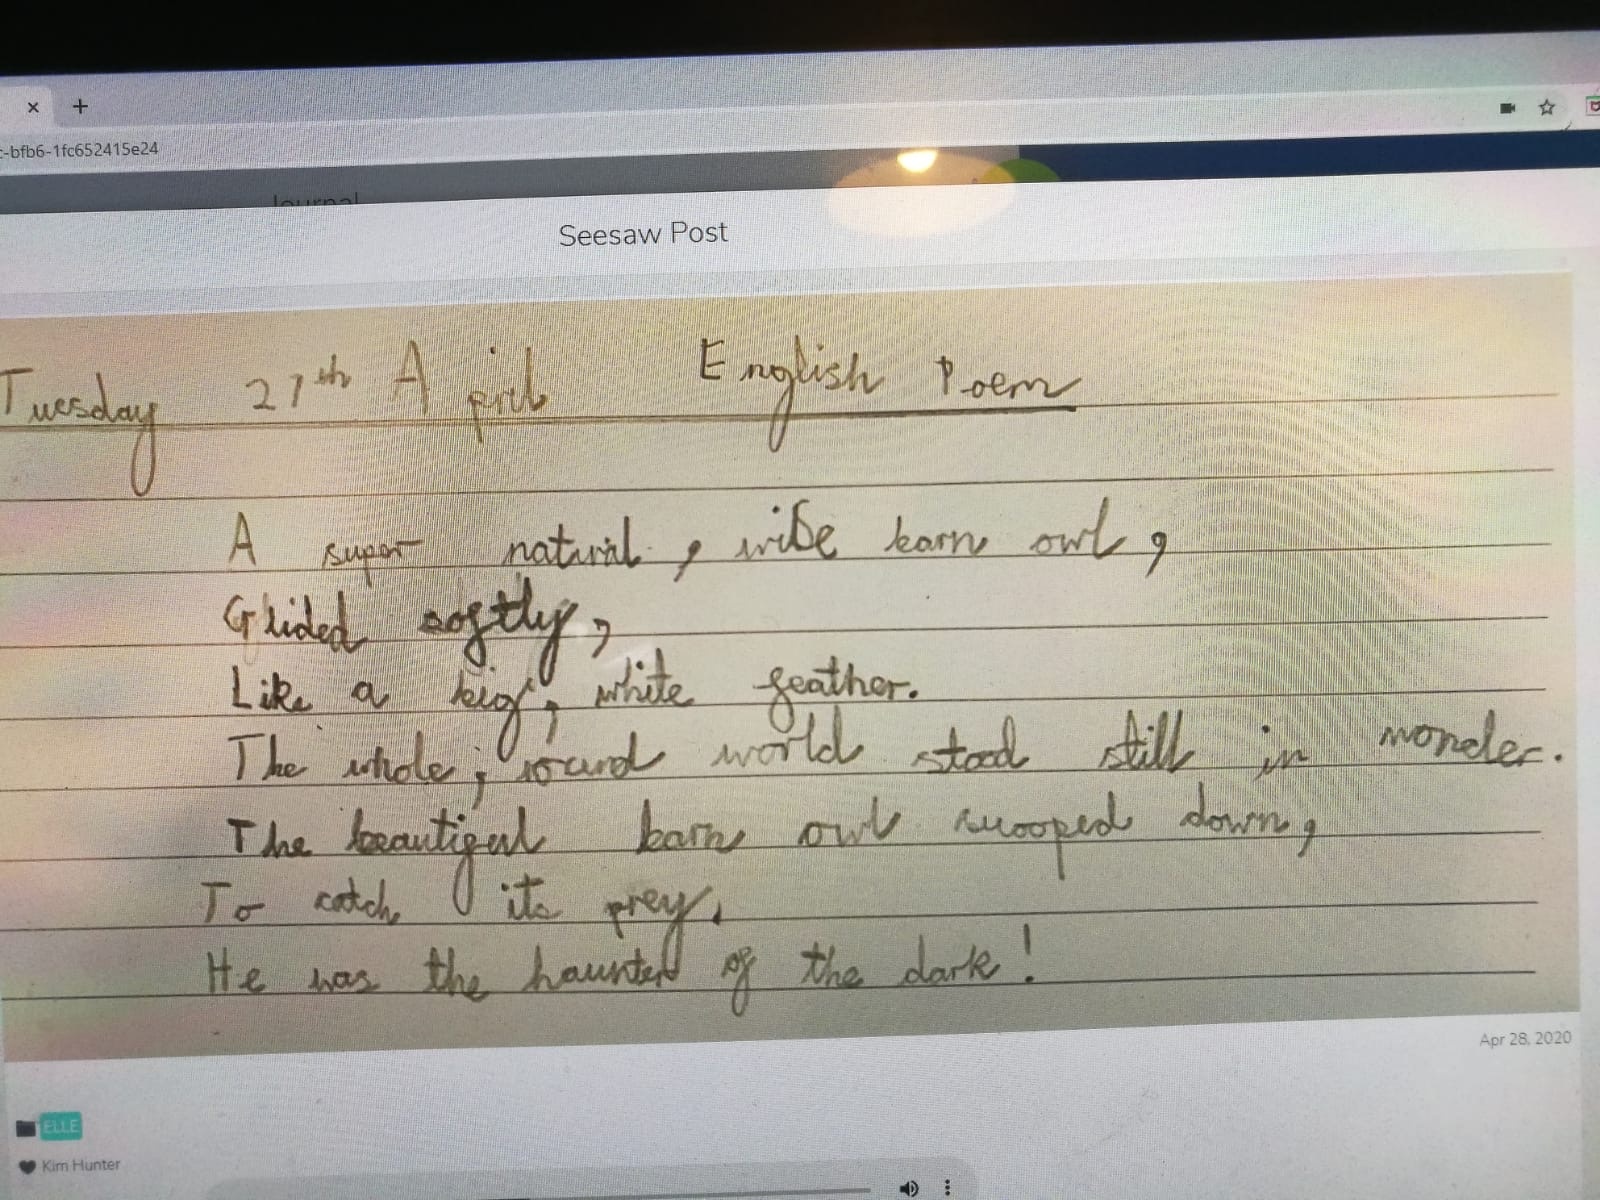 -bfb6-1fc652415e24
Journal
Seesaw Post
Tuesday 27th April English Poem
A super natural, wise barn owl,
Glided softly,
Like a big, white feather.
The whole, round world stood still in wonder.
The beautiful barn owl swooped down,
To catch its prey.
He was the haunted of the dark!
Apr 28, 2020
ELLE
Kim Hunter